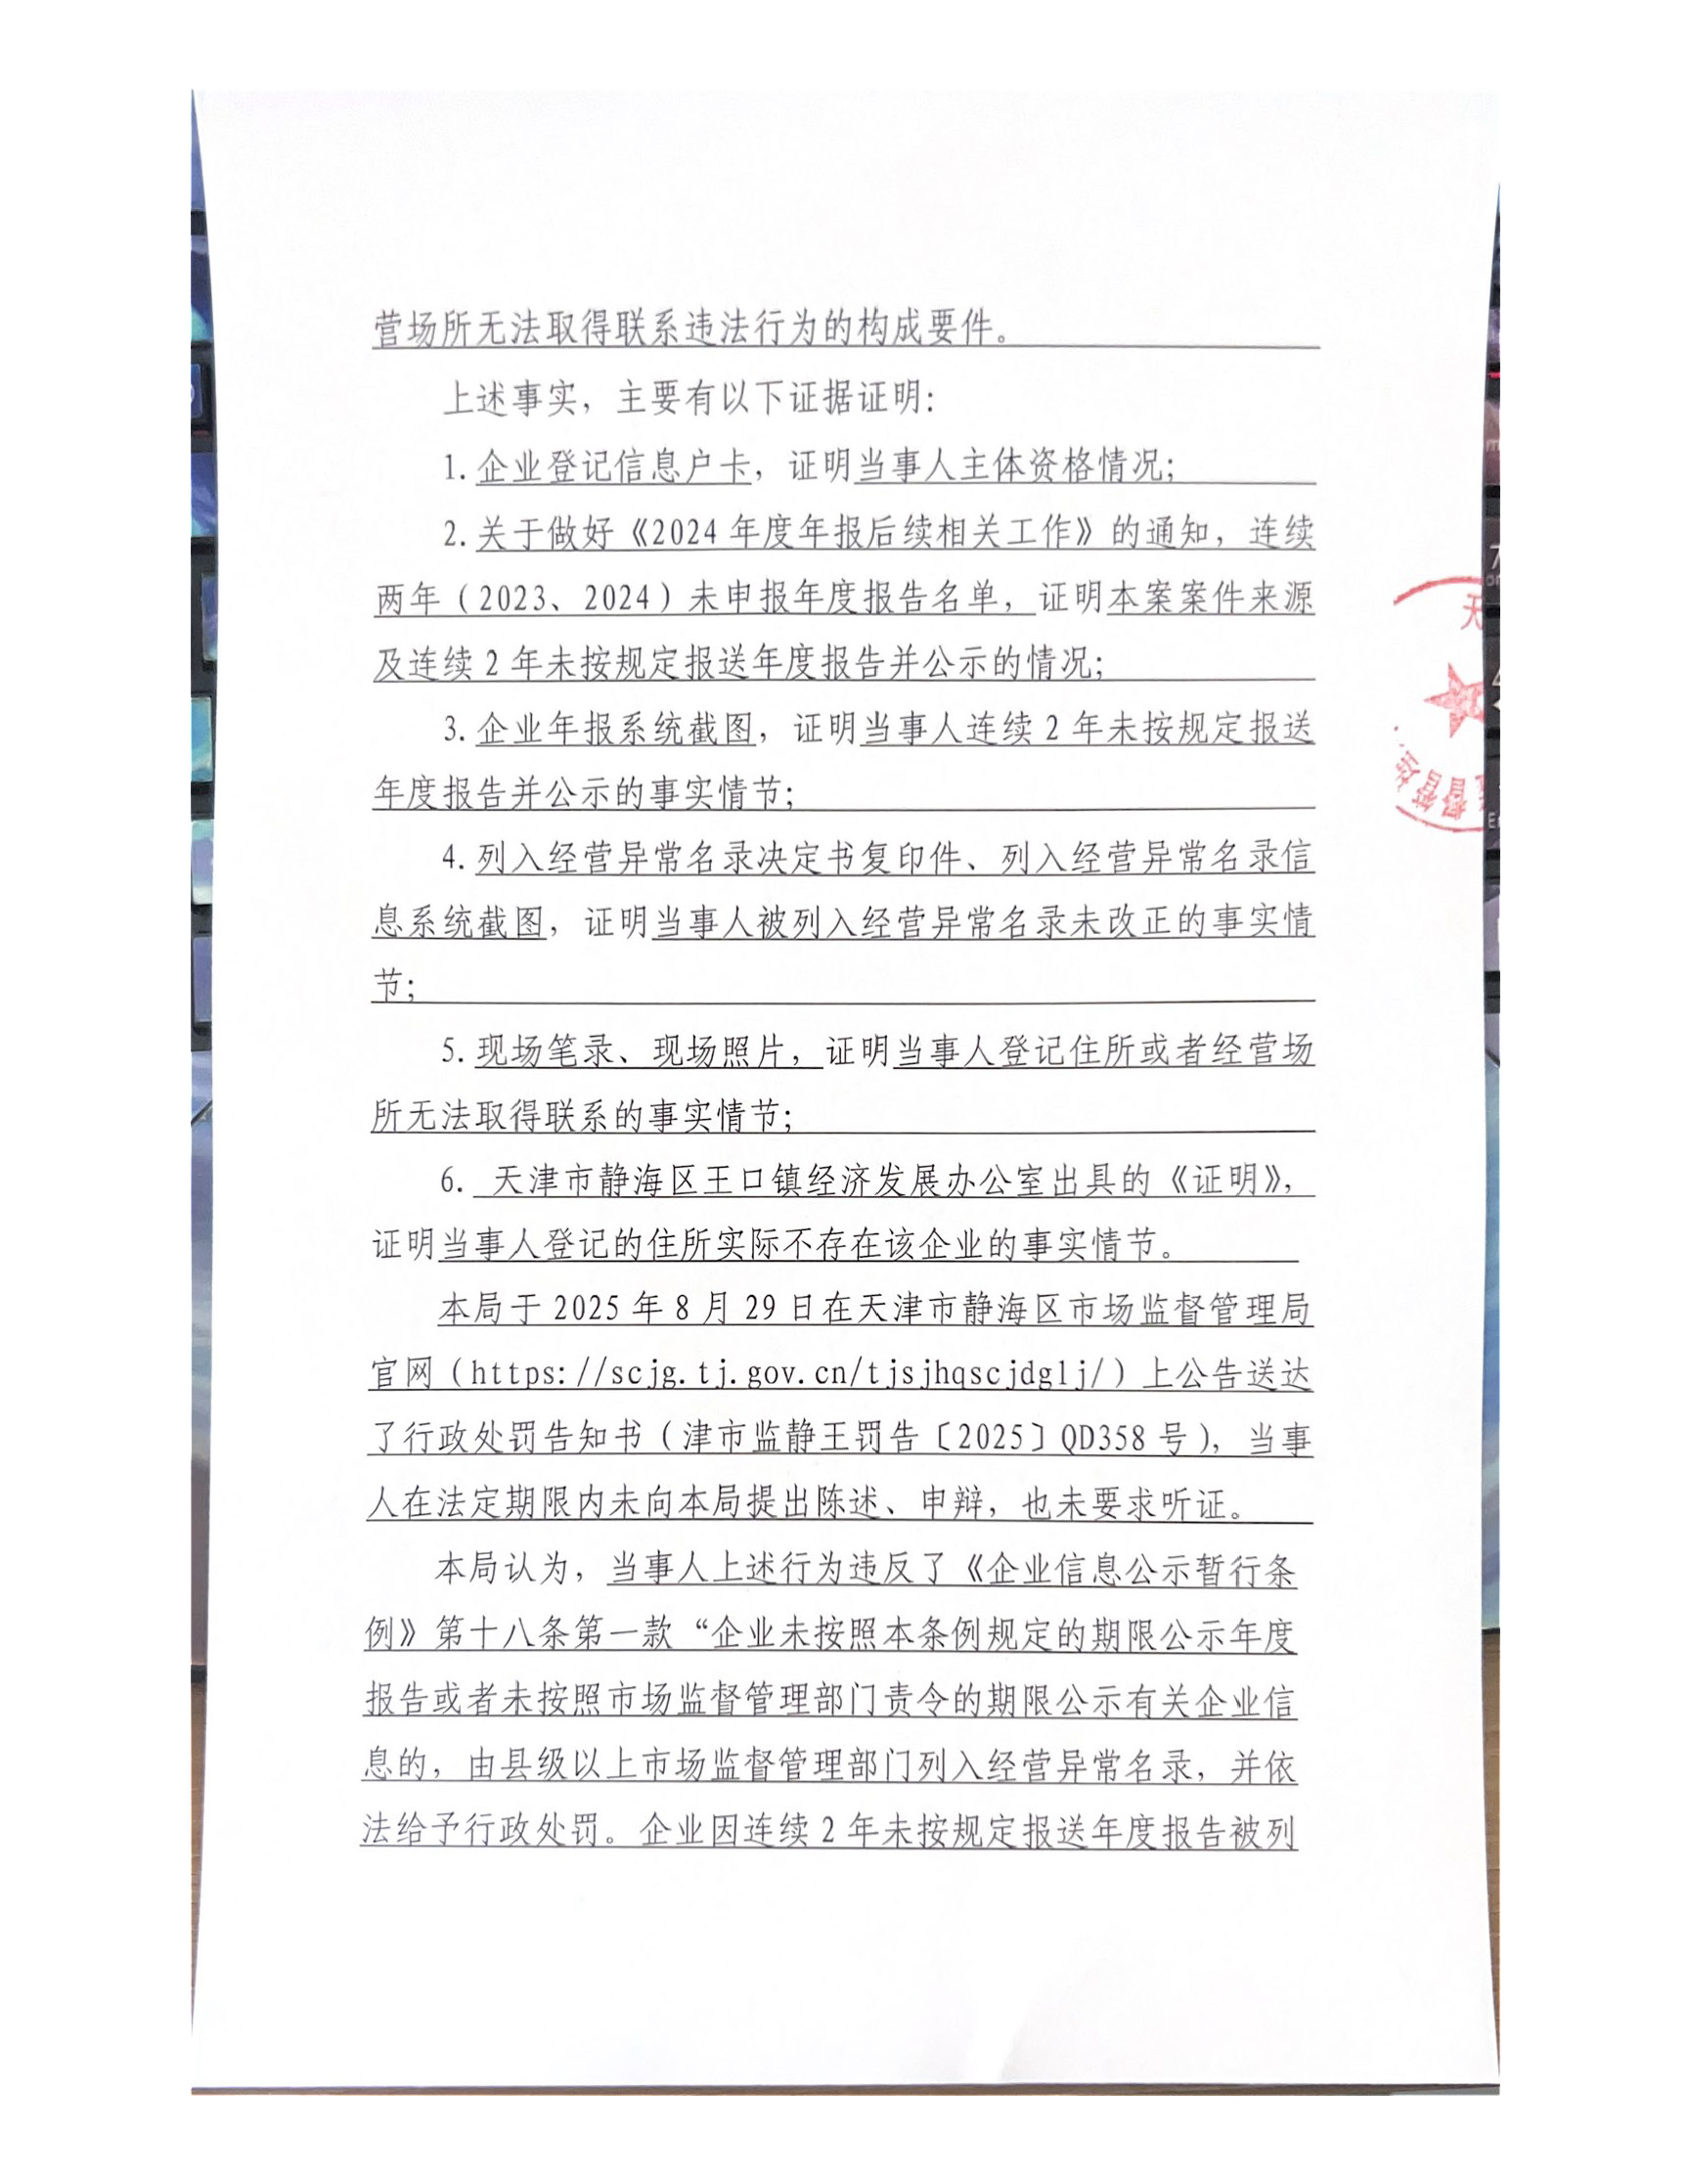 营场所无法取得联系违法行为的构成要件。
上述事实，主要有以下证据证明：
1.企业登记信息户卡，证明当事人主体资格情况；
2.关于做好《2024年度年报后续相关工作》的通知，连续
两年（2023、2024）未申报年度报告名单，证明本案案件来源
及连续2年未按规定报送年度报告并公示的情况；
3.企业年报系统截图，证明当事人连续2年未按规定报送
年度报告并公示的事实情节；
4.列入经营异常名录决定书复印件、列入经营异常名录信
息系统截图，证明当事人被列入经营异常名录未改正的事实情
节；
5.现场笔录、现场照片，证明当事人登记住所或者经营场
所无法取得联系的事实情节；
6. 天津市静海区王口镇经济发展办公室出具的《证明》，
证明当事人登记的住所实际不存在该企业的事实情节。
本局于2025年8月29日在天津市静海区市场监督管理局
官网（https://scjg.tj.gov.cn/tjsjhqscjdglj/）上公告送达
了行政处罚告知书（津市监静王罚告〔2025〕QD358号），当事
人在法定期限内未向本局提出陈述、申辩，也未要求听证。
本局认为，当事人上述行为违反了《企业信息公示暂行条
例》第十八条第一款“企业未按照本条例规定的期限公示年度
报告或者未按照市场监督管理部门责令的期限公示有关企业信
息的，由县级以上市场监督管理部门列入经营异常名录，并依
法给予行政处罚。企业因连续2年未按规定报送年度报告被列
天
督管